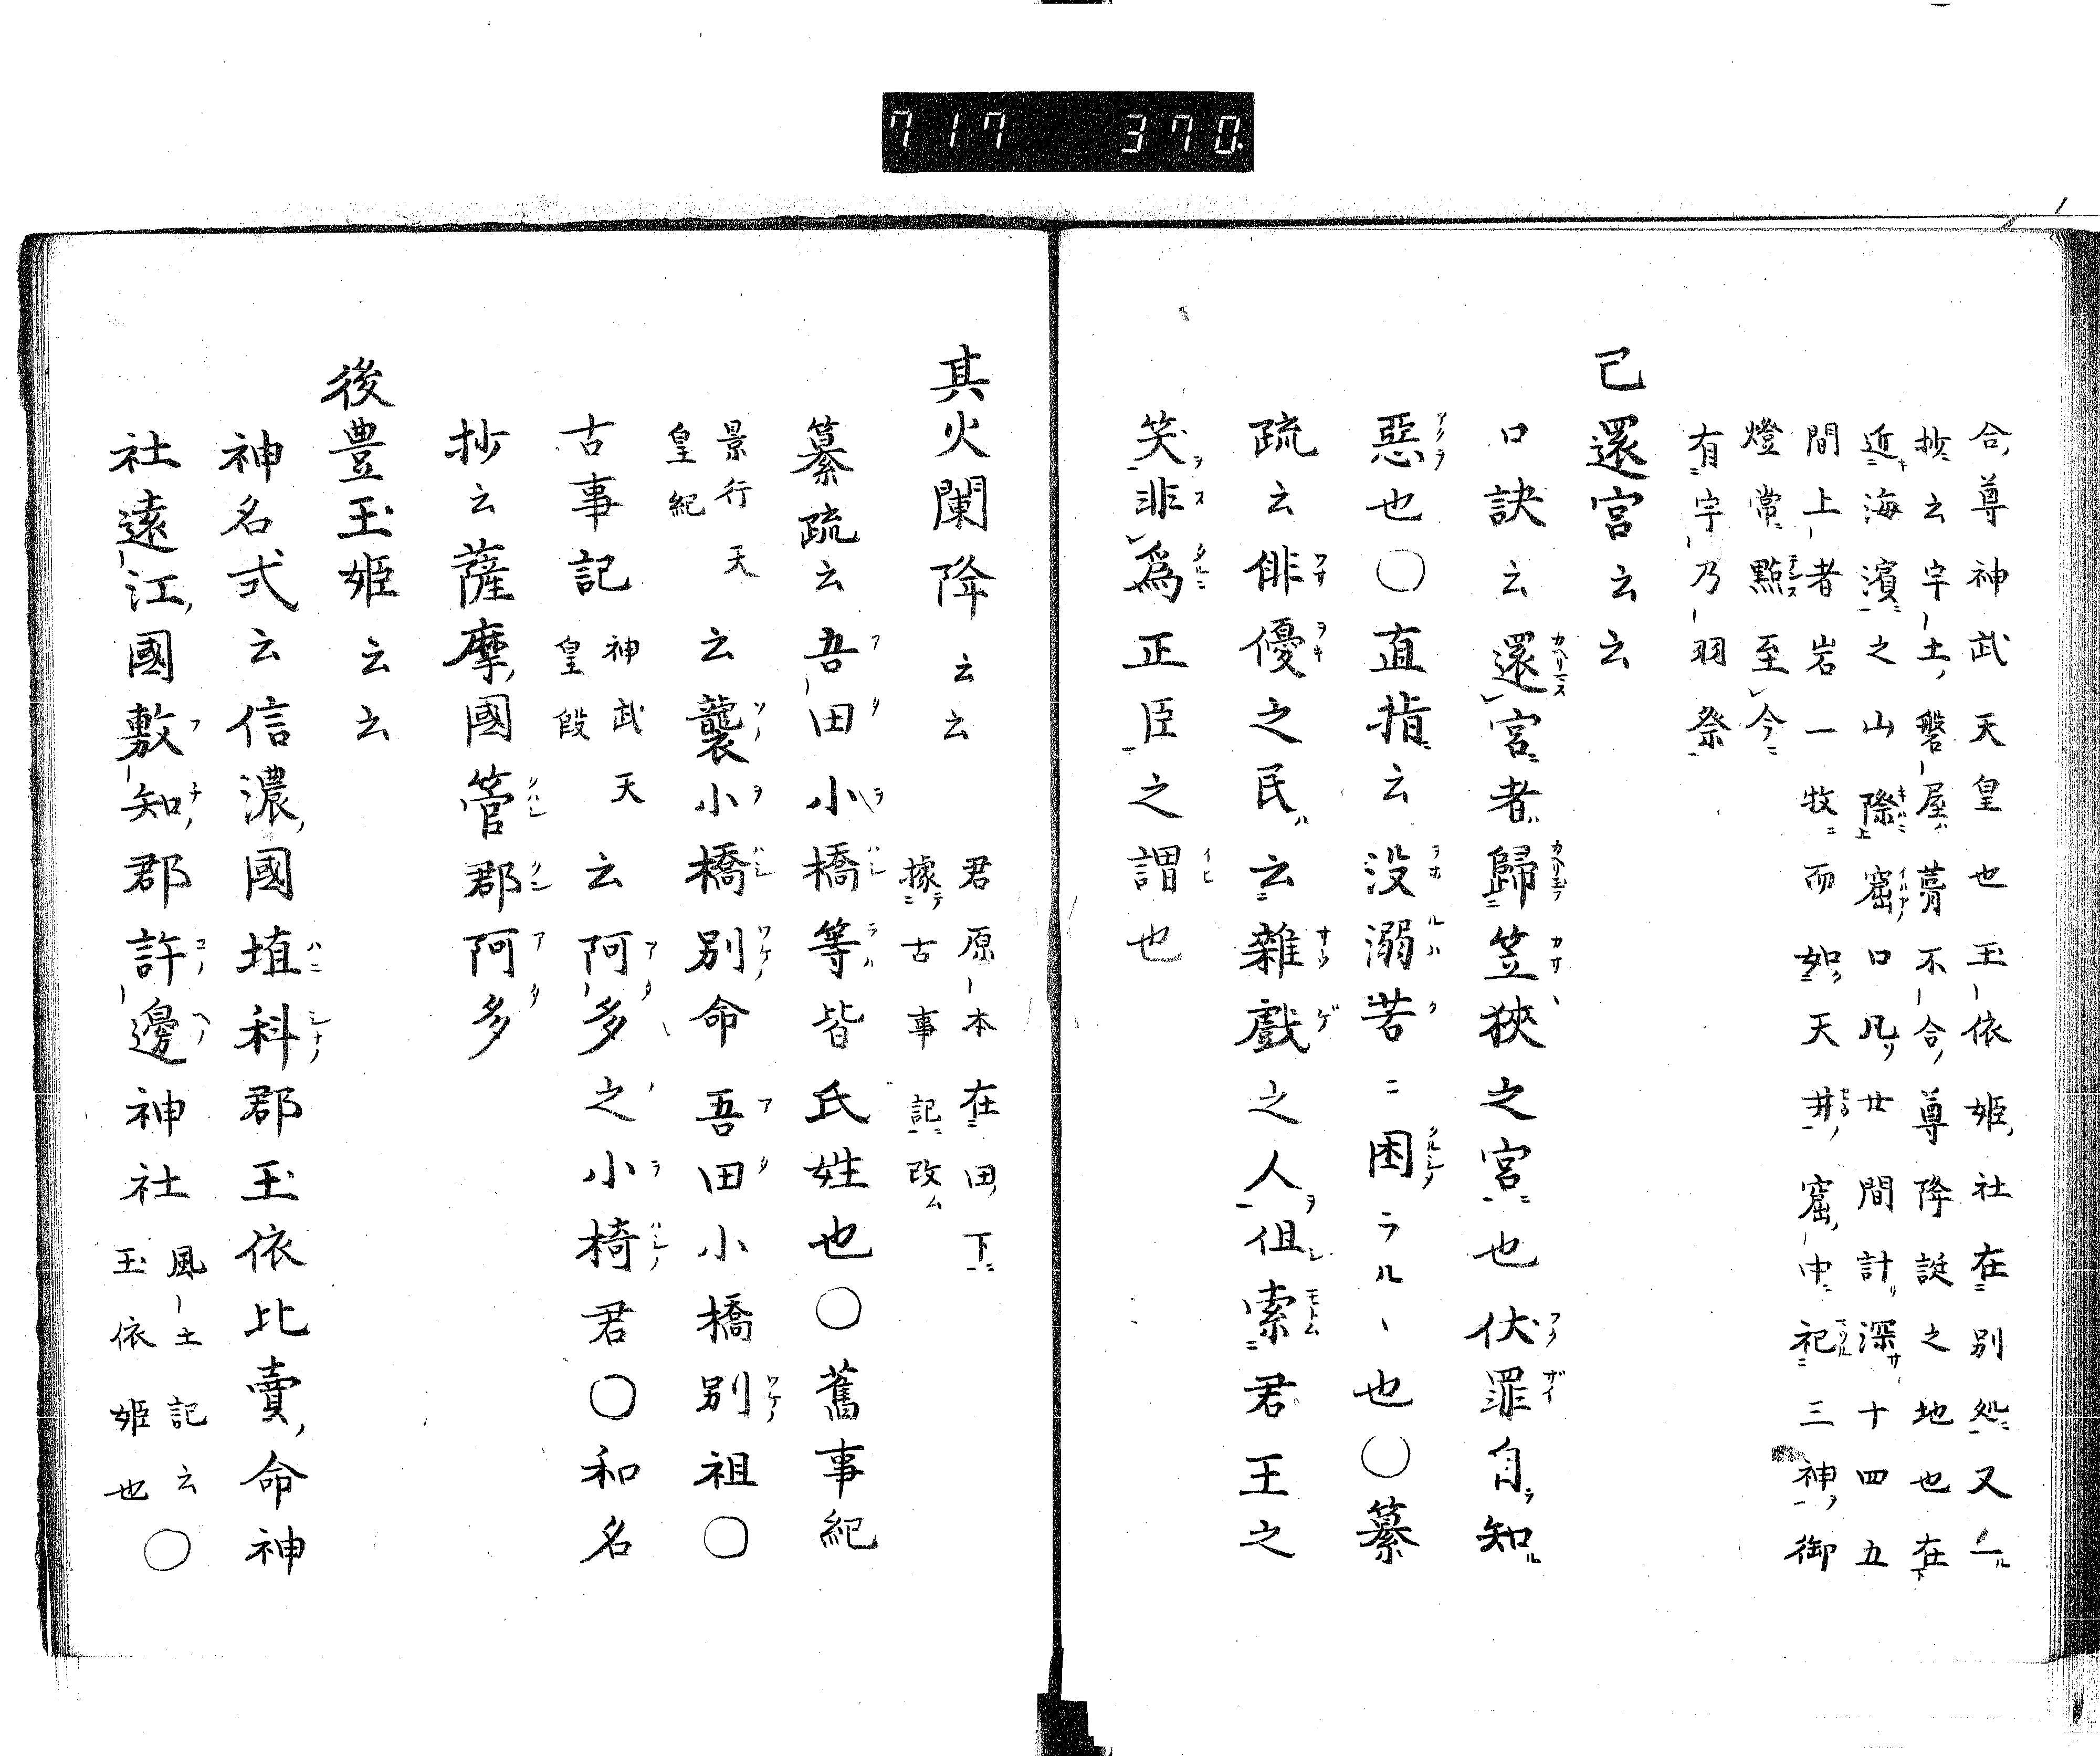 717 370
合尊神武天皇也玉依姫社在別処又一
抄云宇土磐屋葺不合尊降誕之地也在
近海濱之山際窟口凡廿間計深十四五
間上者岩一牧而如天井窟中祀三神御
燈常點至今
有宇乃羽祭
已還宮云云
口訣云還宮者歸笠狹之宮也伏罪自知
惡也〇直指云没溺苦ニ困ラルヽ也〇纂
疏云俳優之民云雜戯之人伹索君王之
笑非為正臣之謂也
其火闌降云云
君原本在田下
據古事記改ム
纂疏云吾田小橋等皆氏姓也〇舊事紀
景行天
皇紀
云襲小橋別命吾田小橋別祖〇
古事記
神武天
皇段
云阿多之小椅君〇和名
抄云薩摩國管郡阿多
後豊玉姫云云
神名式云信濃國埴科郡玉依比賣命神
社遠江國敷知郡許邊神社
風土記云
玉依姫也
〇